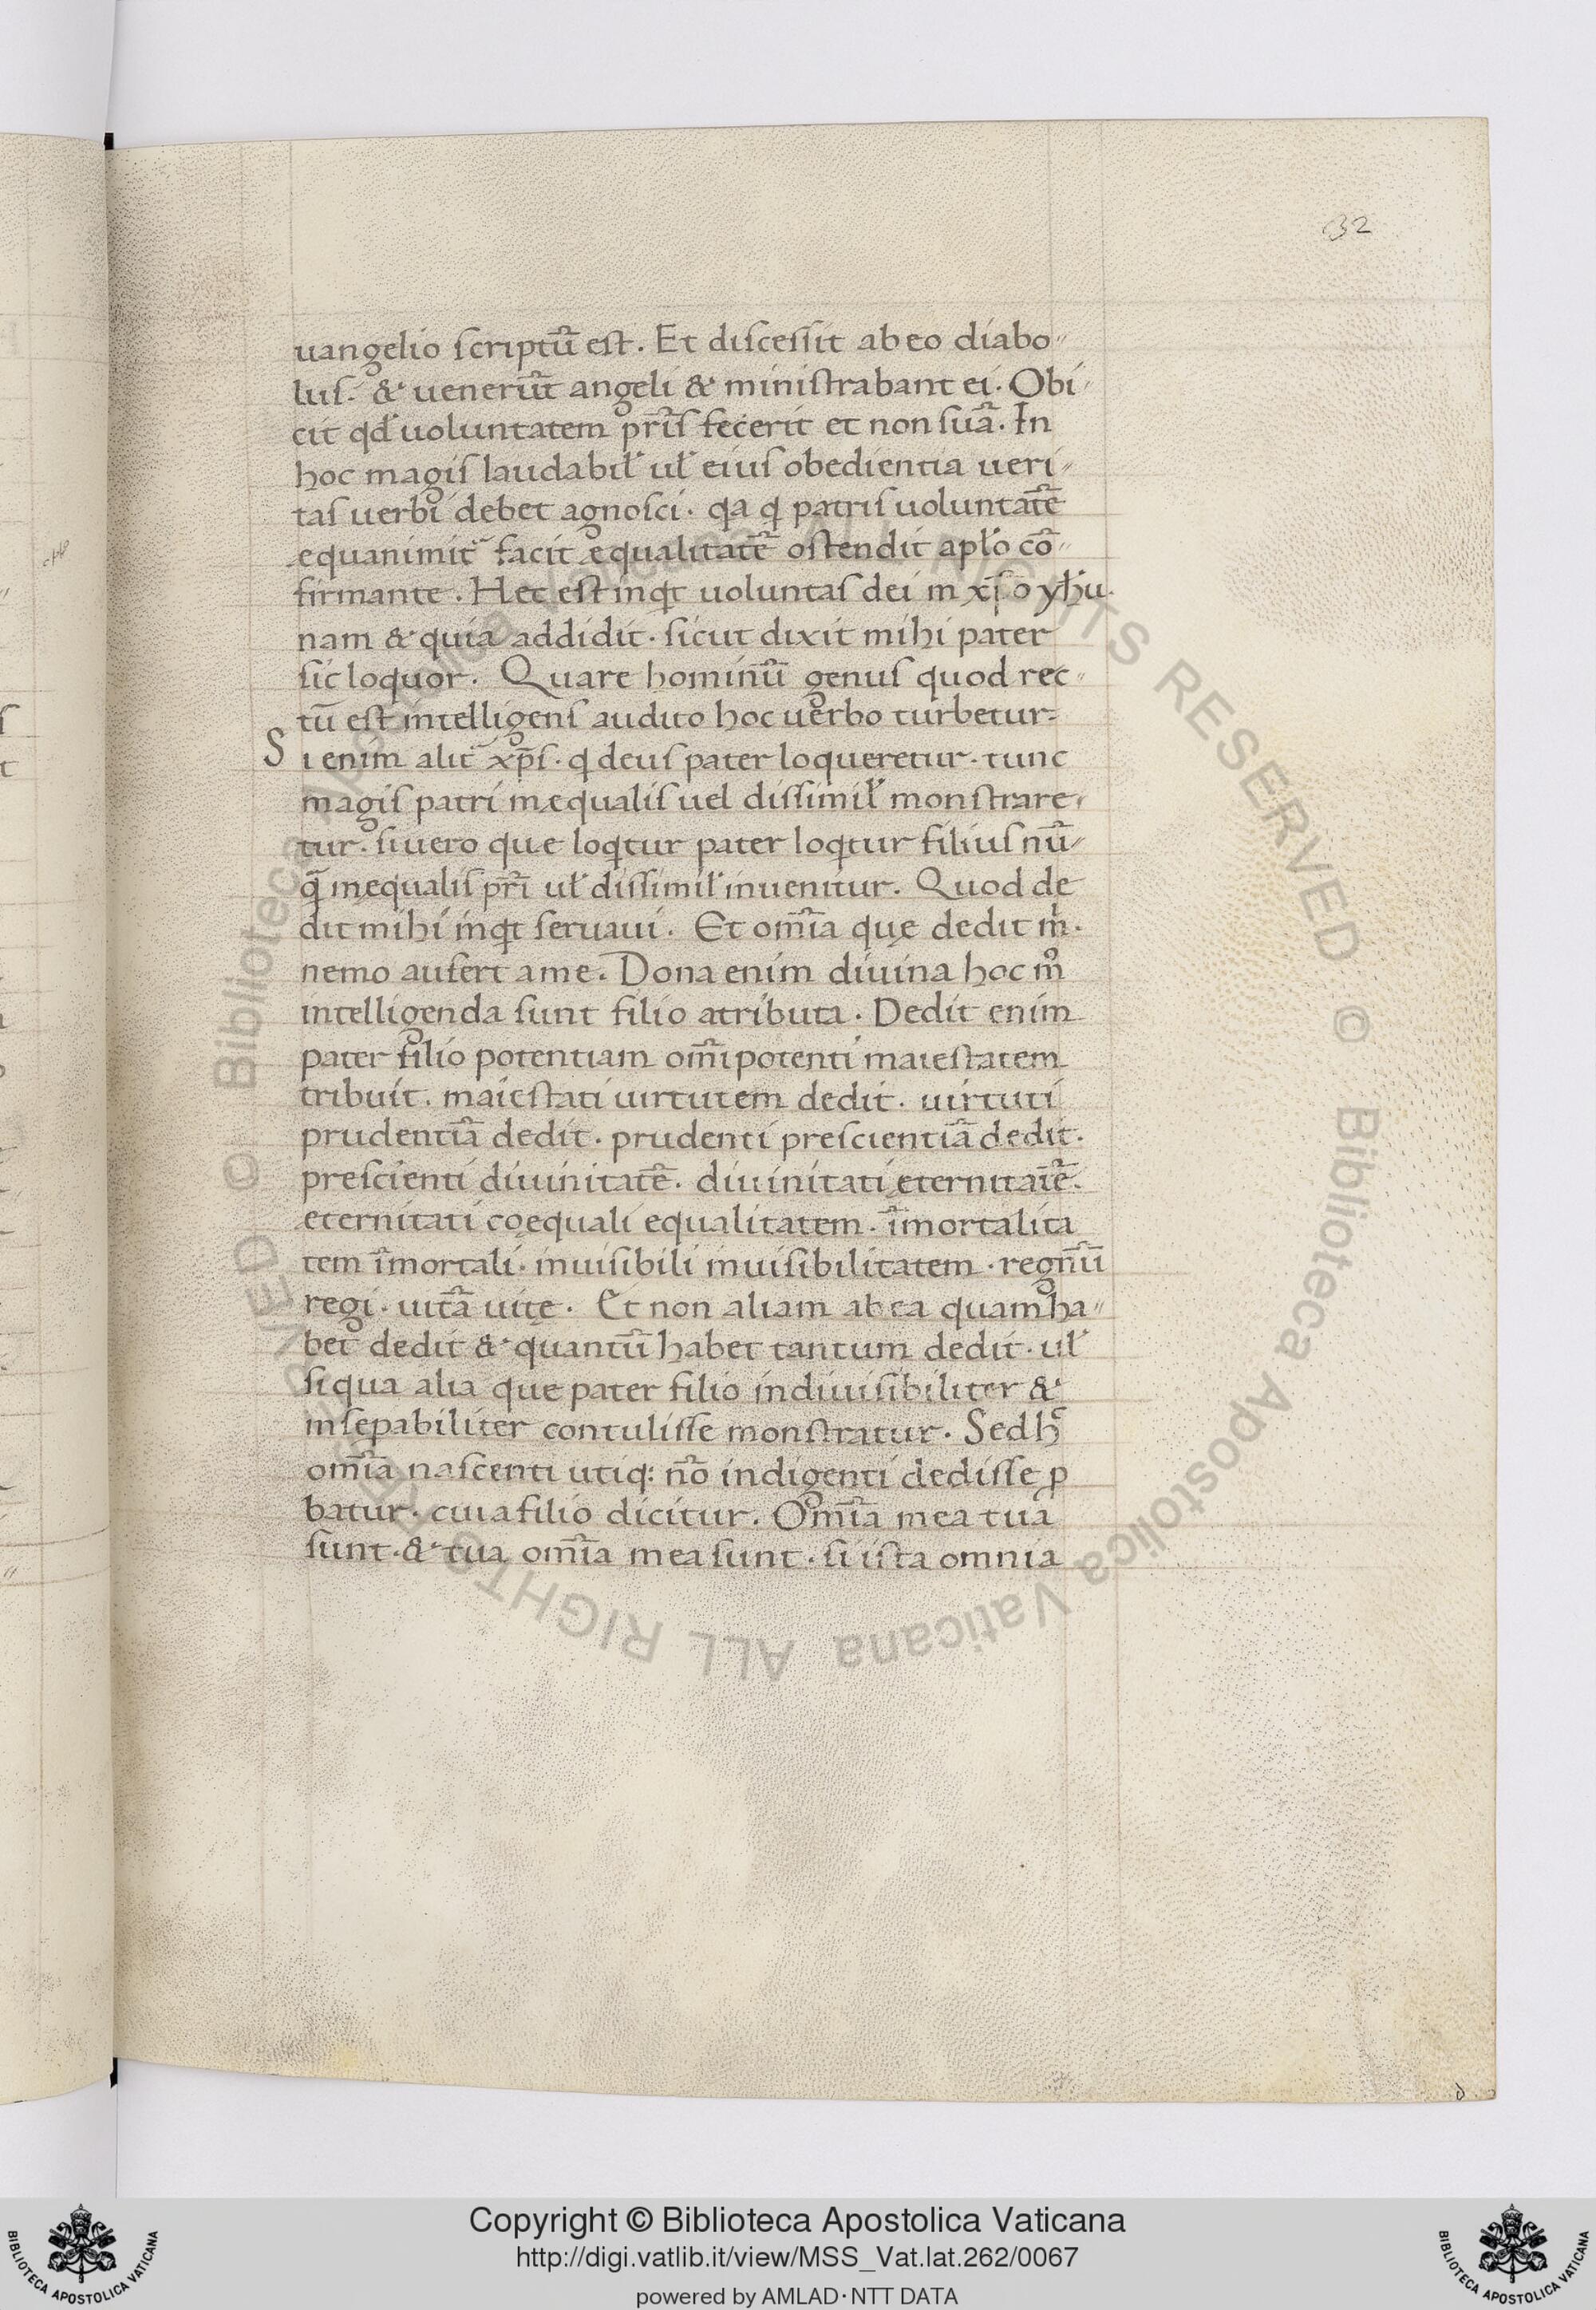 32
uangelio scriptū est. Et discessit ab eo diabo
lus. & uenerūt angeli & ministrabant ei. Obi
cit qd̕ uoluntatem pr̄is fecerit et non suā. In
hoc magis laudabil̕ ul̕ eius obedientia ueri
tas uerbi debet agnosci. qa q patris uoluntatē
equanimit̕ facit equalitatē ostendit apl̕o cō
firmante. Hec est inqt uoluntas dei in xp̄o yh̄u.
nam & quia addidit. sicut dixit mihi pater
sic loquor. Quare hominū genus quod rec
tū est intelligens audito hoc uerbo turbetur.
Si enim alit̕ xp̄s. q deus pater loqueretur. tunc
magis patri inęqualis uel dissimil̕ monstrare
tur. si uero que loqtur pater loqtur filius nū
q̄ inęqualis pr̄i ul̕ dissimil̕ inuenitur. Quod de
dit mihi inqt seruaui. Et om̄ia quę dedit m̕.
nemo aufert a me. Dona enim diuina hoc m̊
intelligenda sunt filio atributa. Dedit enim
pater filio potentiam om̄ipotenti maiestatem
tribuit. maiestati uirtutem dedit. uirtuti
prudentiā dedit. prudenti prescientiā dedit.
prescienti diuinitatē. diuinitati ęternitatē.
eternitati coęquali equalitatem. īmortalita
tem īmortali. inuisibili inuisibilitatem. regnū
regi. uitā uitę. Et non aliam ab ea quam ha
bet dedit & quantū habet tantum dedit. ul̕
si qua alia que pater filio indiuisibiliter &
insepabiliter contulisse monstratur. Sed h̕
om̄ia nascenti utiq: nō indigenti dedisse p
batur. cui a filio dicitur. Om̄ia mea tua
sunt. & tua om̄ia mea sunt. si ista omnia
Copyright © Biblioteca Apostolica Vaticana
http://digi.vatlib.it/view/MSS_Vat.lat.262/0067
powered by AMLAD·NTT DATA
BIBLIOTECA APOSTOLICA VATICANA
BIBLIOTECA APOSTOLICA VATICANA
© Biblioteca Apostolica Vaticana ALL RIGHTS RESERVED © Biblioteca Apostolica Vaticana ALL RIGHTS RESERVED